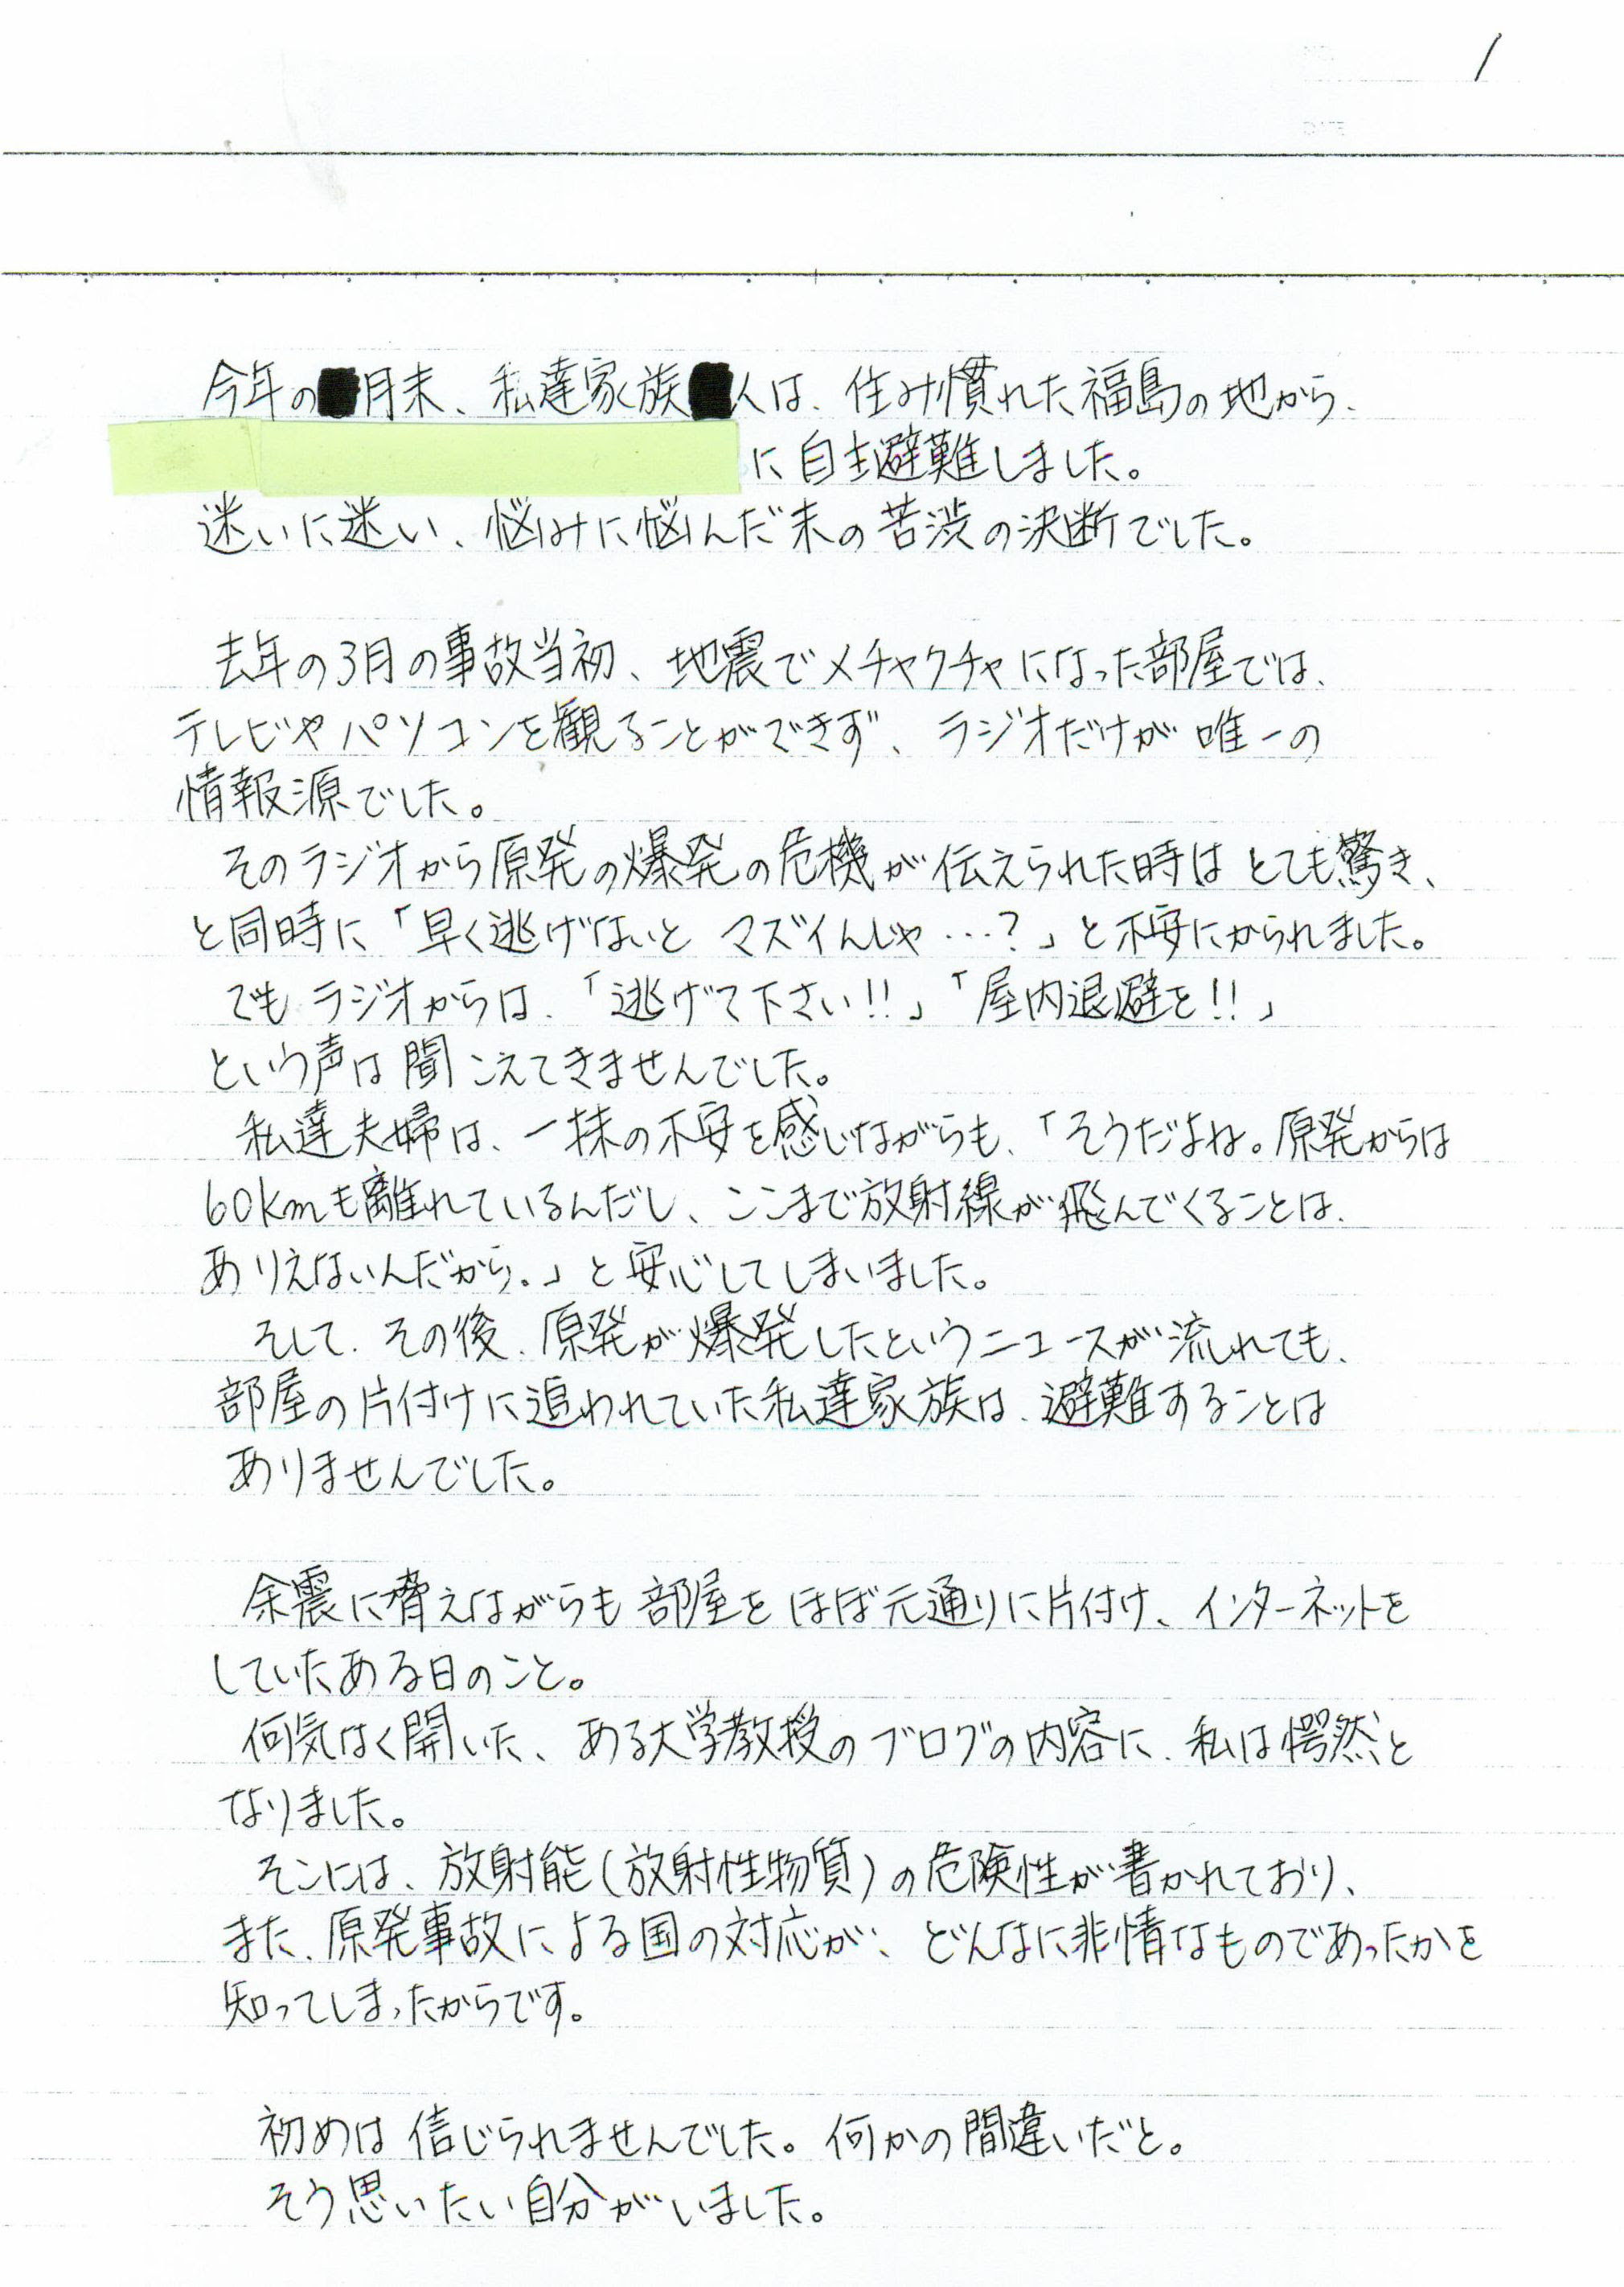 1
今年の月末、私達家族人は、住み慣れた福島の地から、
に自主避難しました。
迷いに迷い、悩みに悩んだ末の苦渋の決断でした。
去年の3月の事故当初、地震でメチャクチャになった部屋では、
テレビやパソコンを観ることができず、ラジオだけが唯一の
情報源でした。
そのラジオから原発の爆発の危機が伝えられた時はとても驚き、
と同時に「早く逃げないとマズイんじゃ…?」と不安にかられました。
でもラジオからは、「逃げて下さい!!」「屋内退避を!!」
という声は聞こえてきませんでした。
私達夫婦は、一抹の不安を感じながらも、「そうだよね。原発からは
60kmも離れているんだし、ここまで放射線が飛んでくることは、
ありえないんだから。」と安心してしまいました。
そして、その後、原発が爆発したというニュースが流れても、
部屋の片付けに追われていた私達家族は、避難することは
ありませんでした。
余震に脅えながらも部屋をほぼ元通りに片付け、インターネットを
していたある日のこと。
何気なく開いた、ある大学教授のブログの内容に、私は愕然と
なりました。
そこには、放射能(放射性物質)の危険性が書かれており、
また、原発事故による国の対応が、どんなに非情なものであったかを
知ってしまったからです。
初めは信じられませんでした。何かの間違いだと。
そう思いたい自分がいました。